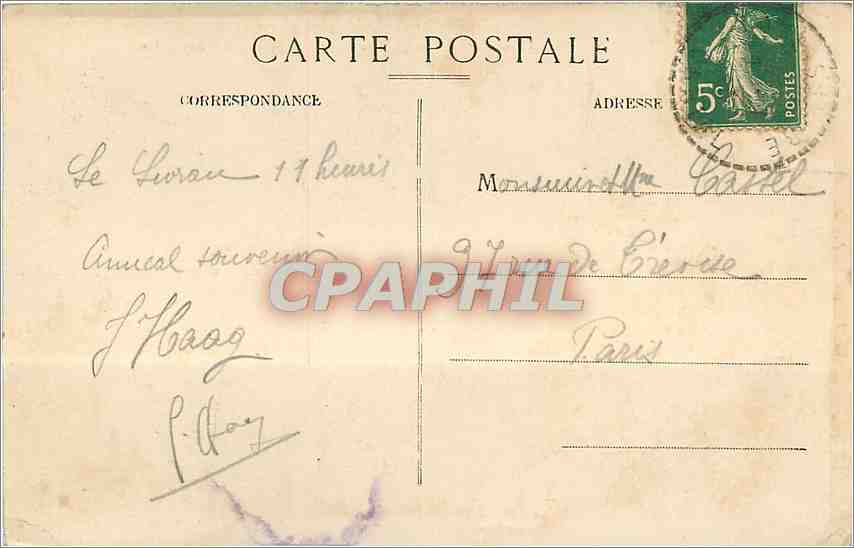 CARTE POSTALE
CORRESPONDANCE
ADRESSE
5c
POSTES
RE
Le Lioran 11 heures
Amical souvenir
J Haag
Monsieur et Mme Cassel
37 rue de Trévise
Paris
CPAPHIL